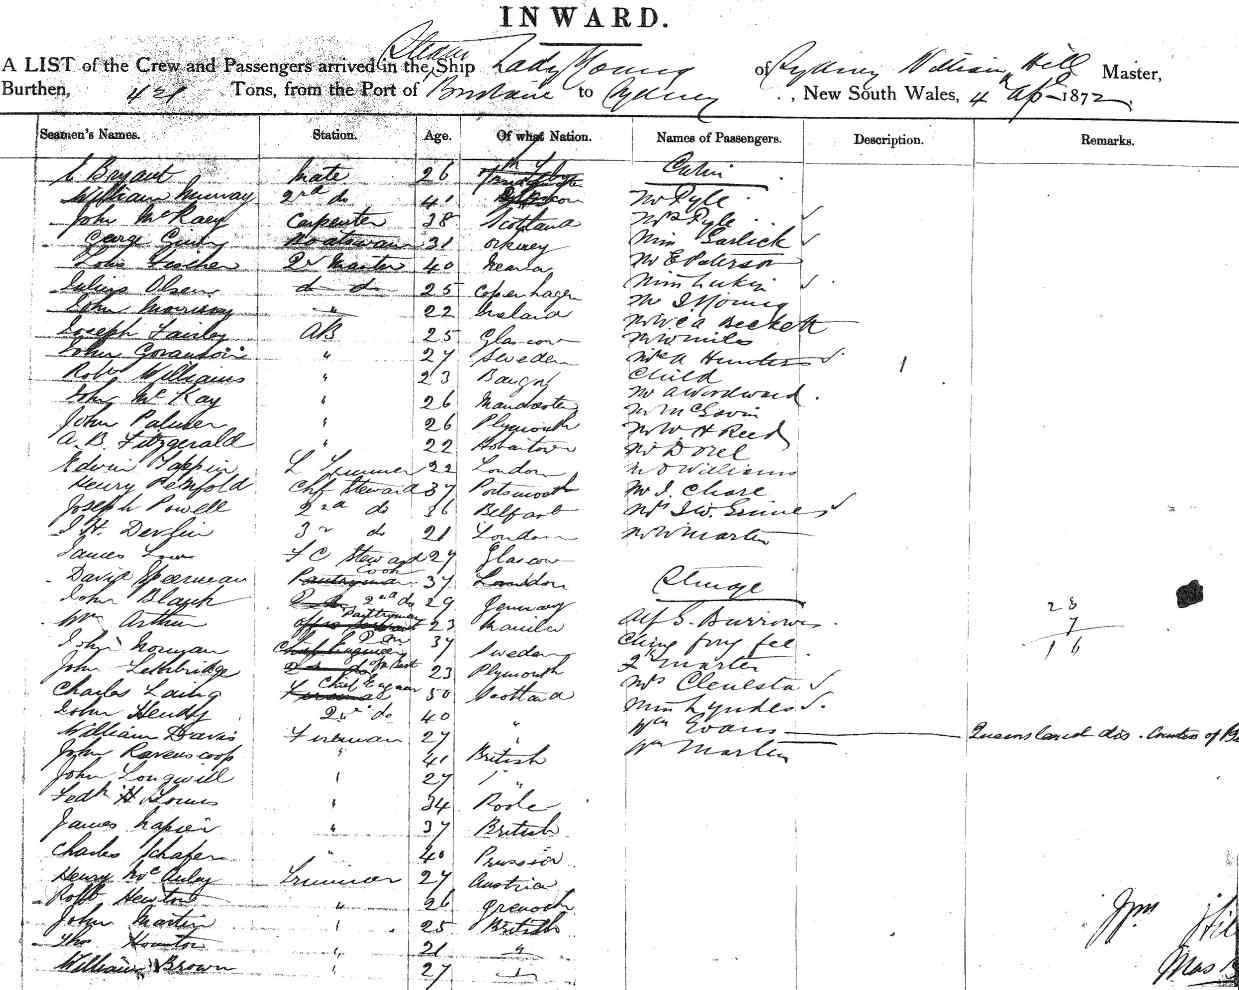 INWARD.
A LIST of the Crew and Passengers arrived in the Steam Ship Lady Young of Sydney William Hill Master,
Burthen, 421 Tons, from the Port of Brisbane to Sydney, New South Wales, 4 Ap 1872
Seamen's Names. Station. Age. Of what Nation. Names of Passengers. Description. Remarks.
E Bryant Mate 26 Cabin
William Murray 2nd do 41 Mr Pyle
John McRaey Carpenter 38 Scotland Mrs Pyle
George Boatswain 31 Orkney Miss Garlick
Louis Fischer Qr Master 40 Mr E Paterson
Julius Olsen do do 25 Copenhagen Miss Lukin
John Morrissy " 22 Ireland Mr J Young
Joseph Fairley AB 25 Glasgow Mr W. a Beckett
John Goranson " 27 Sweden Mr W Miles
Robt Williams " 23 Bangor Mrs A Hunters 1
John McKay " 26 Manchester Child
John Palmer " 26 Plymouth Mr A Woodward
A. B. Fitzgerald " 22 Hobartown Mr McGavin
Edwin Tappin L Trimmer 22 London Mr W H Reed
Henry Penfold Chf Steward 37 Portsmouth Mr D
Joseph Powell 2nd do 36 Belfast Mr D Williams
J. H. Devlin 3rd do 21 London Mr J. Chase
James Low F C Steward 27 Glasgow Mrs J. W.
David Speerman Cook 37 London Mr W Martin
John Blanch 2nd do 29 Germany Steerage
Wm Arthur Pantryman 23 Manila Alf G. Burrows
John Norman 37 Sweden Ching fong fee
John Lethbridge 23 Plymouth Martin
Charles Laing Chief Engineer 50 Scotland Mrs
John Hendy 2nd do 40 " Miss Lyndes
William Davis Fireman 27 " Wm Evans Queensland dis. Countess of
John Ravenscoop " 41 British Wm Martin
John Longwill " 27 "
Fedk H " 34
James Napier " 37 British
Charles Schafer " 40 Prussia
Henry McAulay Trimmer 27 Austria
Robt Hewton " 26 Greenock
John Martin " 25 British
Thos Houston " 21 "
William Brown " 27 "
28
7
16
Wm Hil
Mas